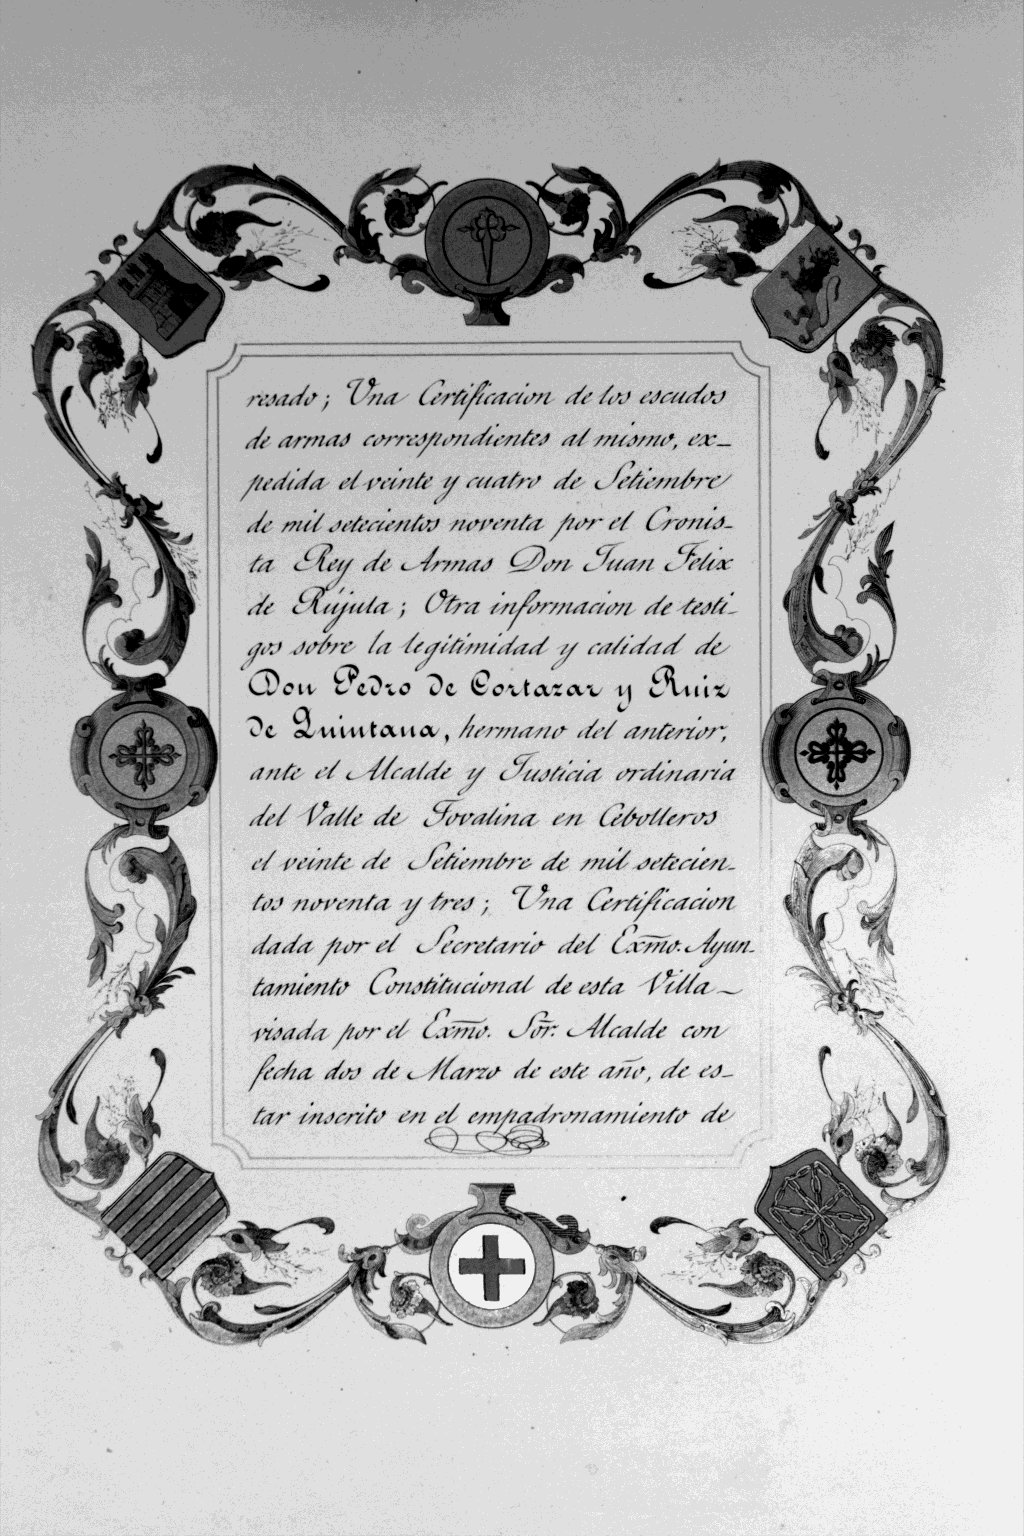 resado; Una Certificacion de los escudos
de armas correspondientes al mismo, ex-
pedida el veinte y cuatro de Setiembre
de mil setecientos noventa por el Cronis-
ta Rey de Armas Don Juan Felix
de Rújula; Otra informacion de testi-
gos sobre la legitimidad y calidad de
Don Pedro de Cortazar y Ruiz
de Quintana, hermano del anterior,
ante el Alcalde y Justicia ordinaria
del Valle de Tovalina en Cebolleros
el veinte de Setiembre de mil setecien-
tos noventa y tres; Una Certificacion
dada por el Secretario del Exmo. Ayun-
tamiento Constitucional de esta Villa-
visada por el Exmo. Sor. Alcalde con
fecha dos de Marzo de este año, de es-
tar inscrito en el empadronamiento de